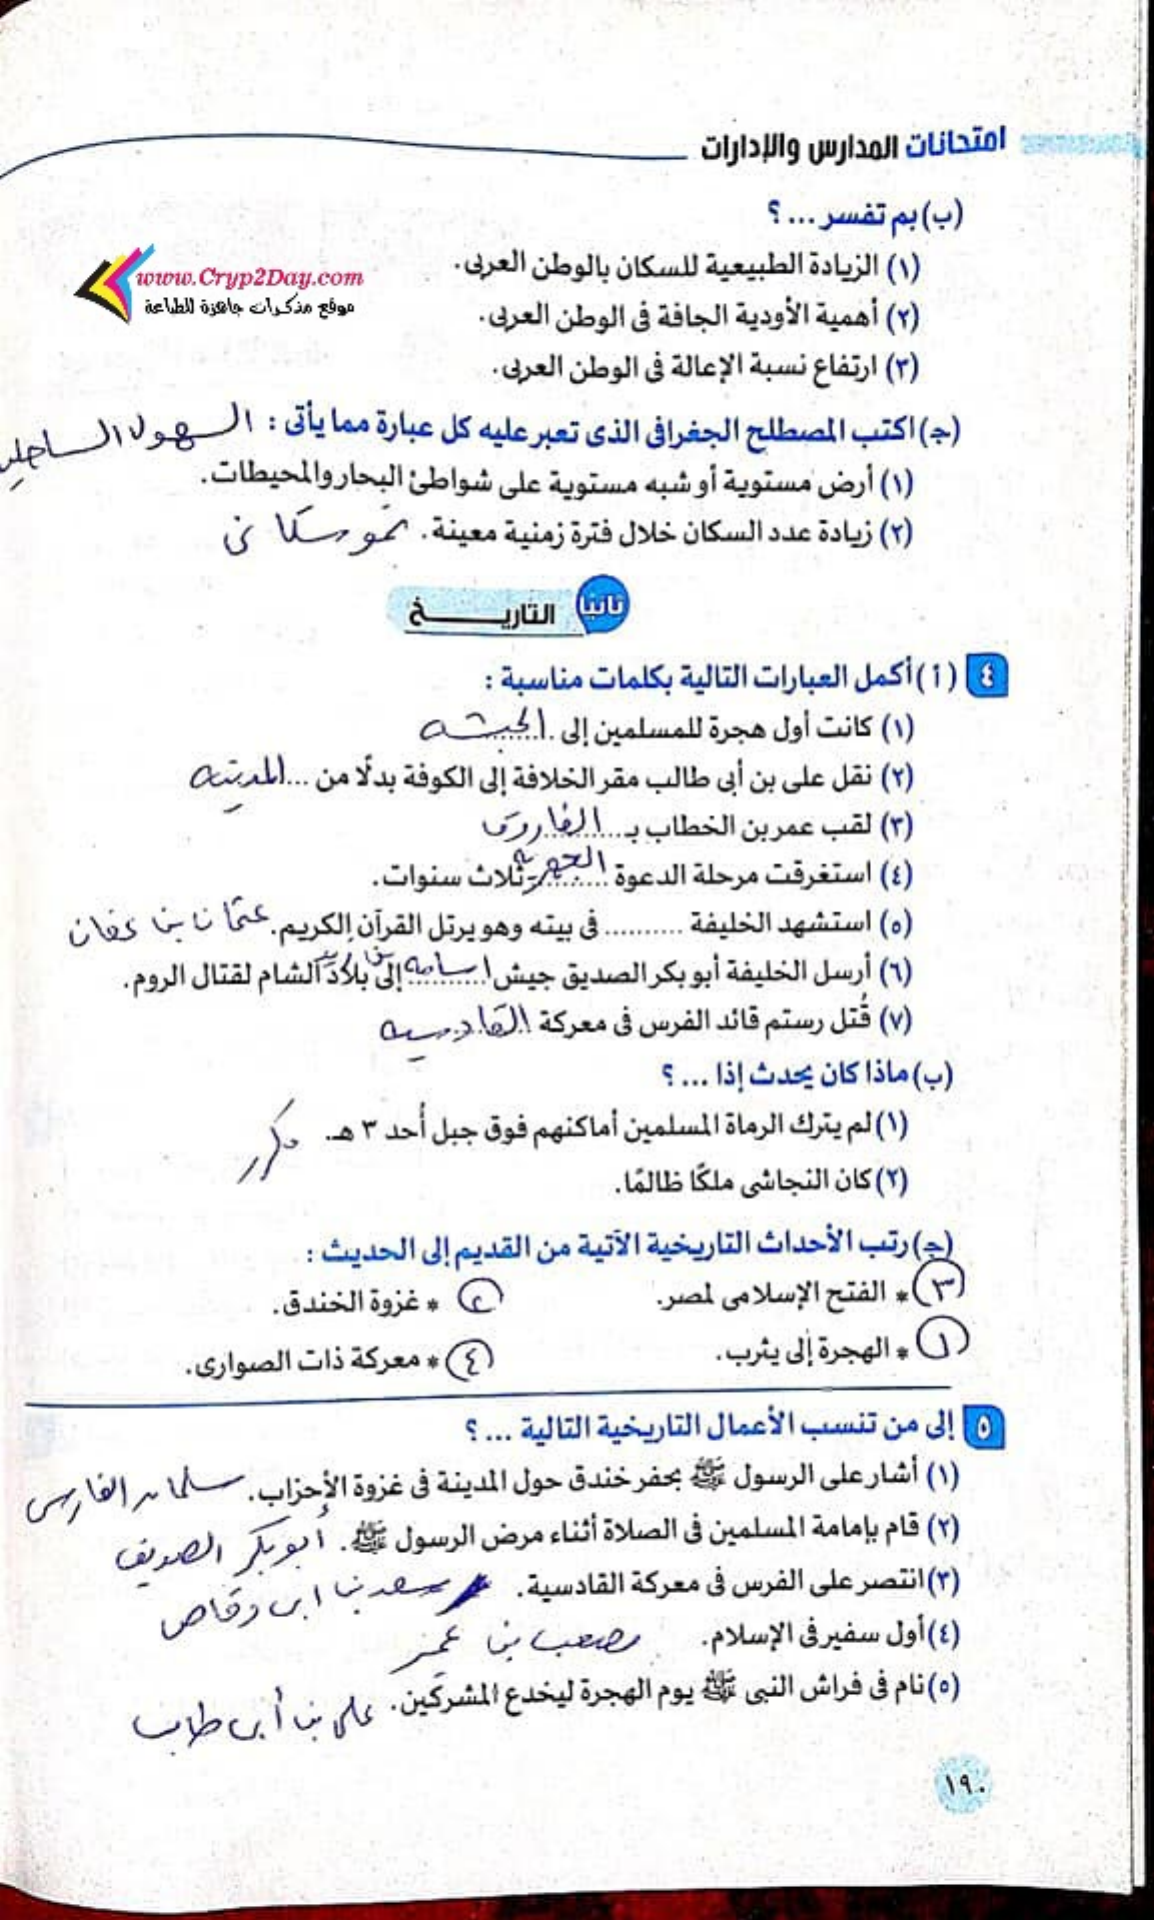 امتحانات المدارس والإدارات
(ب) بم تفسر ... ؟
www.Cryp2Day.com
موقع مذكرات جاهزة للطباعة
(١) الزيادة الطبيعية للسكان بالوطن العربى.
(٢) أهمية الأودية الجافة فى الوطن العربى.
(٣) ارتفاع نسبة الإعالة فى الوطن العربى.
(ج) اكتب المصطلح الجغرافى الذى تعبر عليه كل عبارة مما يأتى : السهول الساحلية
(١) أرض مستوية أو شبه مستوية على شواطئ البحار والمحيطات.
(٢) زيادة عدد السكان خلال فترة زمنية معينة. نمو سكانى
ثانيًا التاريـــــخ
٤ (أ) أكمل العبارات التالية بكلمات مناسبة :
(١) كانت أول هجرة للمسلمين إلى الحبشه
(٢) نقل على بن أبى طالب مقر الخلافة إلى الكوفة بدلًا من ... المدينه
(٣) لقب عمر بن الخطاب بـ الفاروق
(٤) استغرقت مرحلة الدعوة الجهرية ثلاث سنوات.
(٥) استشهد الخليفة .......... فى بيته وهو يرتل القرآن الكريم. عثمان بن عفان
(٦) أرسل الخليفة أبو بكر الصديق جيش اسامه بن زيد إلى بلاد الشام لقتال الروم.
(٧) قُتل رستم قائد الفرس فى معركة القادسيه
(ب) ماذا كان يحدث إذا ... ؟
(١) لم يترك الرماة المسلمين أماكنهم فوق جبل أُحد ٣ هـ. مكرر
(٢) كان النجاشى ملكًا ظالمًا.
(ج) رتب الأحداث التاريخية الآتية من القديم إلى الحديث :
(٣) * الفتح الإسلامى لمصر. (٢) * غزوة الخندق.
(١) * الهجرة إلى يثرب. (٤) * معركة ذات الصوارى.
٥ إلى من تنسب الأعمال التاريخية التالية ... ؟
(١) أشار على الرسول ﷺ بحفر خندق حول المدينة فى غزوة الأحزاب. سلمان الفارسى
(٢) قام بإمامة المسلمين فى الصلاة أثناء مرض الرسول ﷺ. أبو بكر الصديق
(٣) انتصر على الفرس فى معركة القادسية. سعد بن ابى وقاص
(٤) أول سفير فى الإسلام. مصعب بن عمير
(٥) نام فى فراش النبى ﷺ يوم الهجرة ليخدع المشركين. على بن أبى طالب
١٩٠